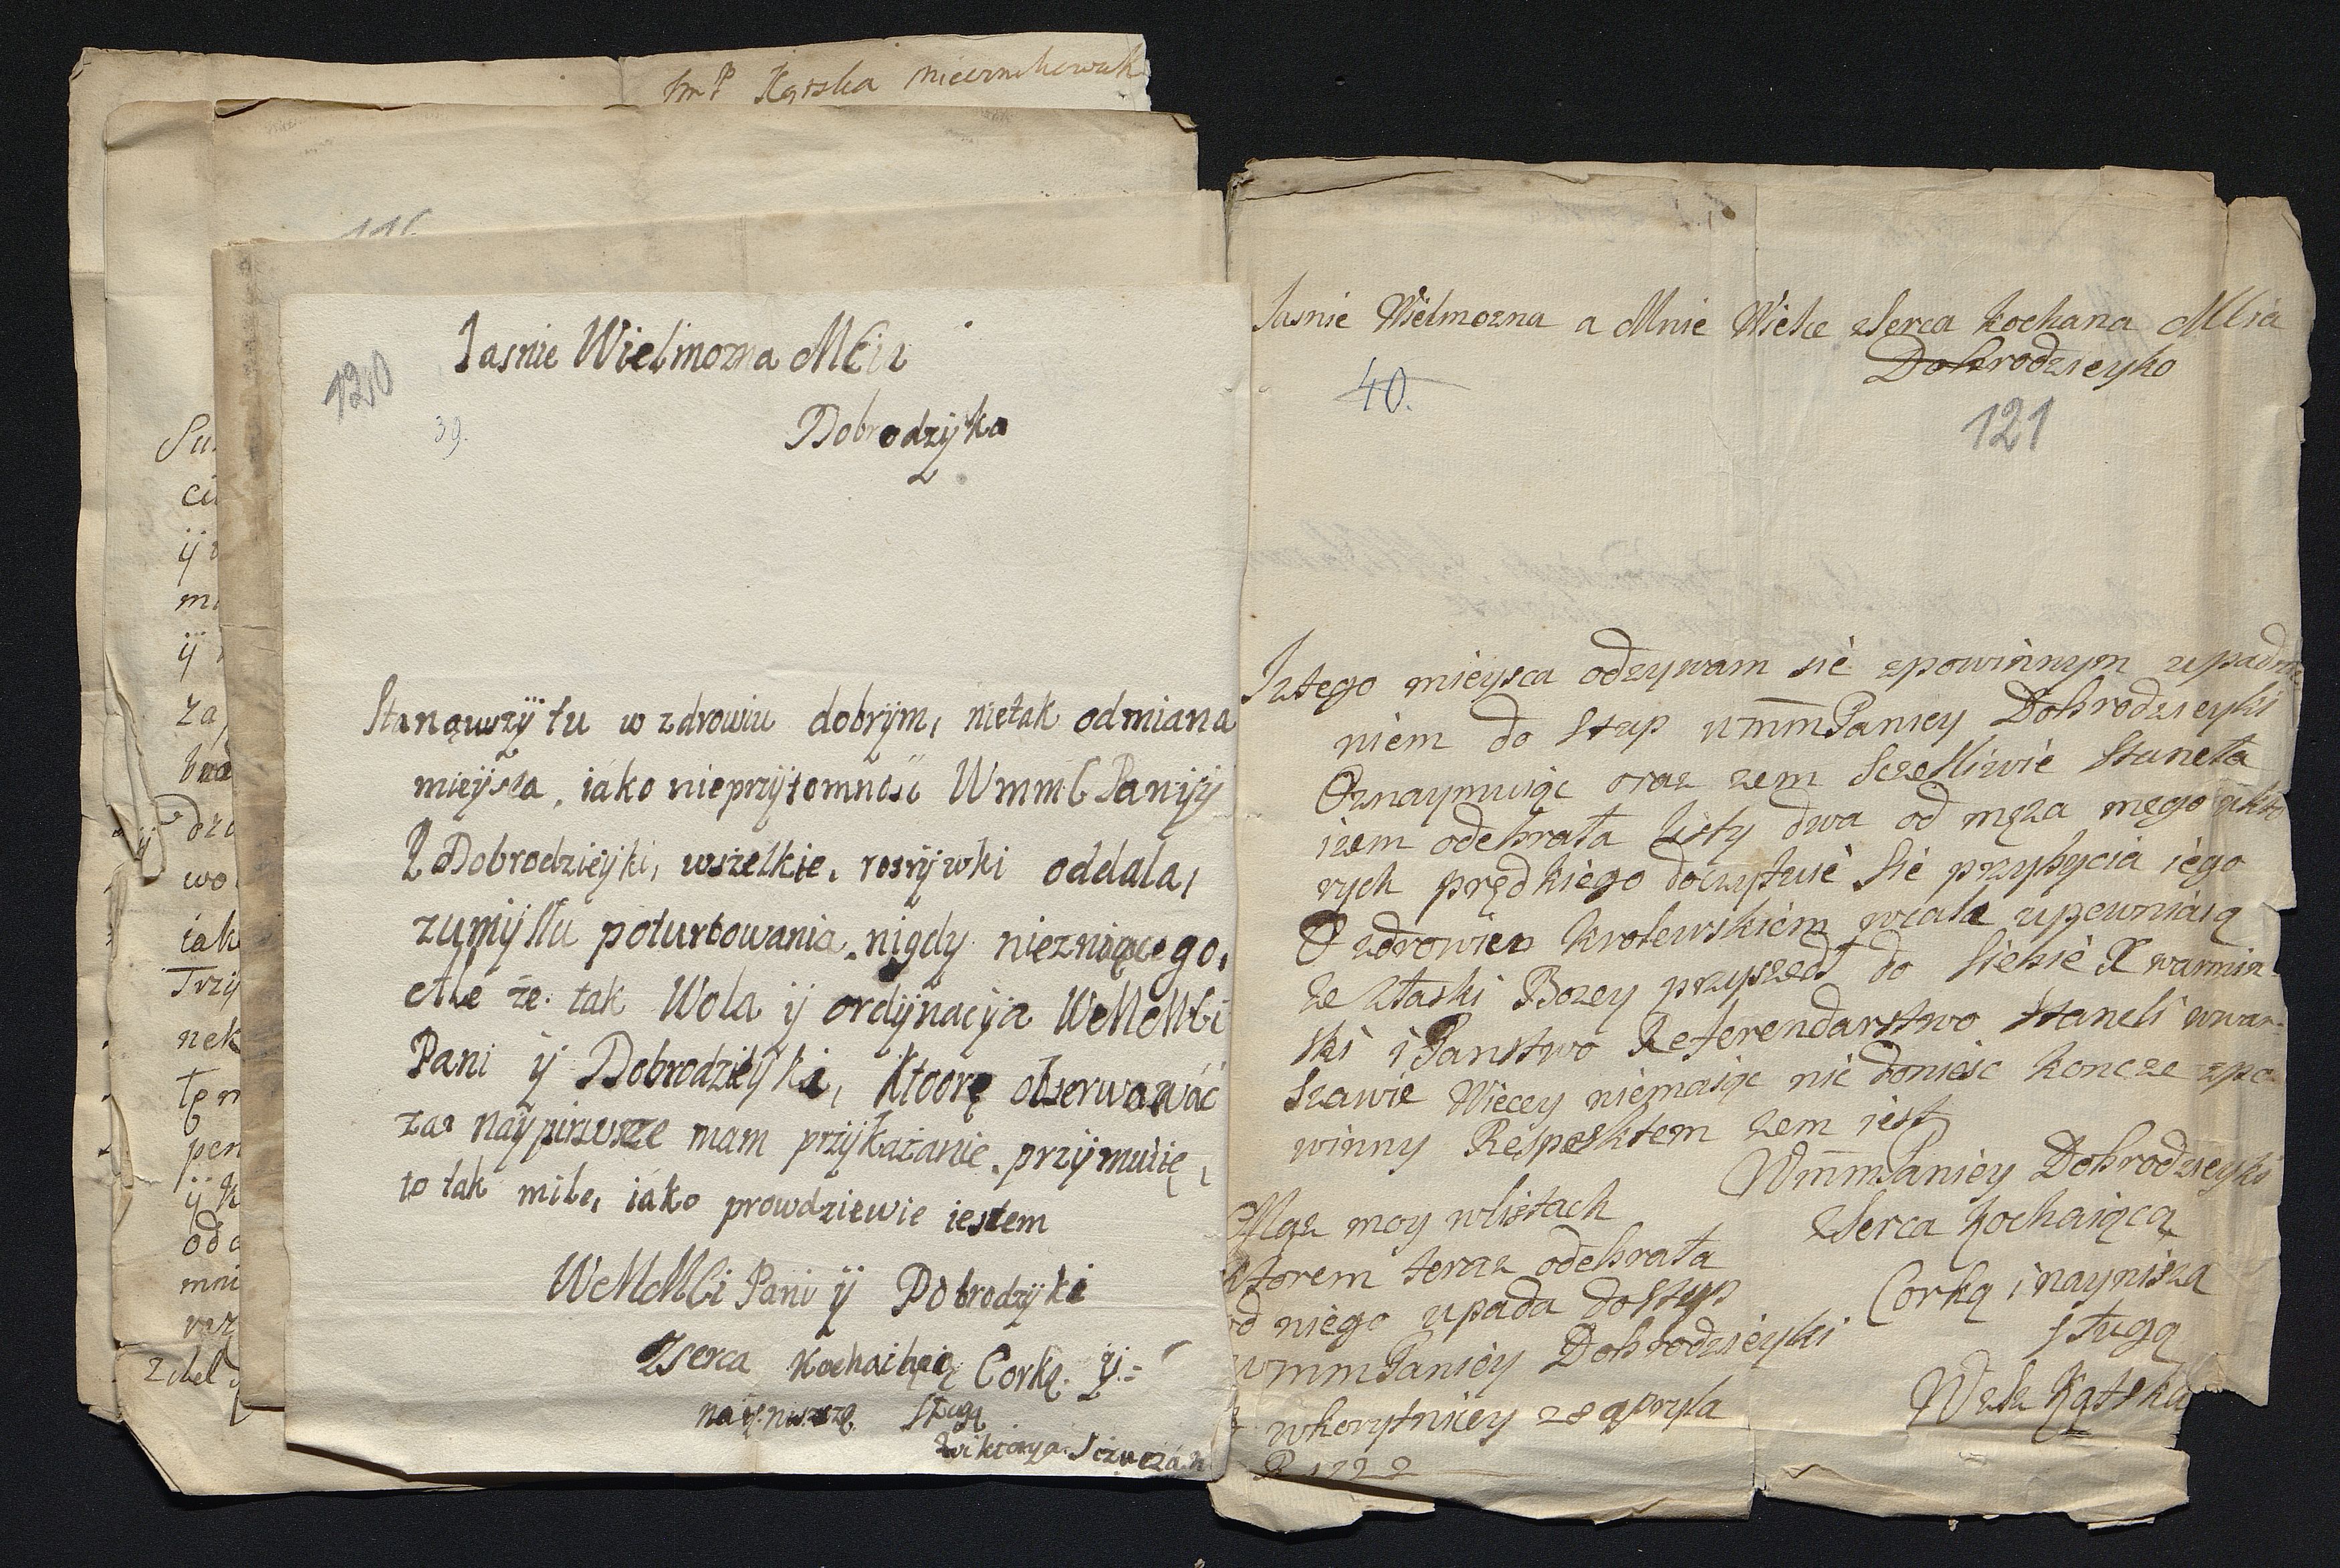 ImP Kątska
116
120
39.
Jasnie Wielmozna MCia
Dobrodzyka
Stanąwszÿ tu w zdrowiu dobrÿm, nietak odmiana
mieÿsca, iáko nieprzÿtomność WmmC Paniÿ
Dobrodzieÿki, wszelkie, rosrÿwki oddala,
zumÿsłu poturbowania. nigdy nieznaiącego,
Ale że. tak Wola ÿ ordÿnacÿa WMMCi
Pani ÿ Dobrodzieÿki, Ktoorę obserwować
za naÿpirwsze mam przÿkazanie. przÿmuiię,
to tak mile, iáko prowdziewie iestem
WMMCi Pani ÿ Dobrodzÿki
Zserca Kochaiącą Corką. ÿ.=
naÿniszszą. Sługą
Wiktorya
Jasnie Wielmozna a Mnie Wielce zSerca kochana MCia
Dobrodzieyko
40.
121
Jztego mieysca odzywam sie zpowinnym upadnie
niem do Stup WmmPaniey Dobrodzieyki
Oznaymuiąc oraz zem Sczesliwie Staneła
izem odebrała listy dwa od męza mego zkto
rych prędkiego doczytuie Sie przybycia iego
O zdrowiu krolewskiem wcale upewniaią
ze złaski Bozey przyszedł do Siebie X warmin
ski i Panstwo Referendarstwo Staneli wwar-
szawie Wiecey niemaiąc nic doniesc koncze zpo
winny Respektem zem iest
WmmPaniey Dobrodzieyki
zSerca kochaiącą
Corką i naynisza
sługą
Kątska
Mąz moy wlistach
ktorem teraz odebrała
od niego upada dostup
WmmPaniey Dobrodzieyki
wkorytnicy 28 apryla
R 1722